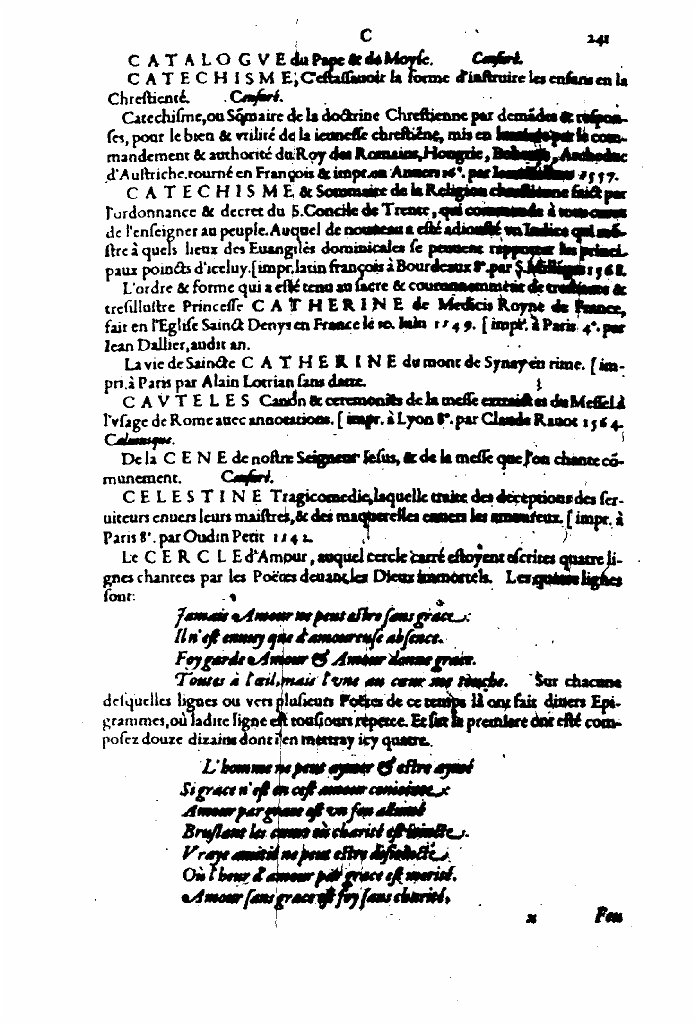 C 241
CATALOGVE du Pape & de Moyse. Censuré.
CATECHISME, C'estassauoir la forme d'instruire les enfans en la
Chrestienté. Censuré.
Catechisme, ou Sōmaire de la doctrine Chrestienne par demādes & respon-
ses, pour le bien & vtilité de la ieunesse chrestiēne, mis en par le com-
mandement & authorité du Roy des Romains, Hongrie, Archeduc
d'Austriche. tourné en François & impr. en Anuers 16°. par 1557.
CATECHISME & Sommaire de la Religion chrestienne faict par
l'ordonnance & decret du S. Concile de Trente, qui commande à tous
de l'enseigner au peuple. Auquel de nouueau a esté adiousté vn Indice qui mō-
stre à quels lieux des Euangiles dominicales se peuuent rapporter les princi-
paux poincts d'iceluy. [impr. latin françois à Bourdeaux 8°. par S. Millanges 1568.
L'ordre & forme qui a esté tenu au sacre & couronnement de &
tresillustre Princesse CATHERINE de Medicis Royne de France,
fait en l'Eglise Sainct Denys en France le 10. Iuin 1549. [impr. à Paris 4°. par
Iean Dallier, audit an.
La vie de Saincte CATHERINE du mont de Synay en rime. [im-
pri. à Paris par Alain Lotrian sans datte.
CAVTELES Canon & ceremonies de la messe extraictes du Messel à
l'vsage de Rome auec annotations. [impr. à Lyon 8°. par Claude Rauot 1564.
Caluinique.
De la CENE de nostre Seigneur Iesus, & de la messe que l'on chante cō-
munement. Censuré.
CELESTINE Tragicomedie, laquelle traite des deceptions des ser-
uiteurs enuers leurs maistres, & des maquerelles enuers les amoureux. [impr. à
Paris 8°. par Oudin Petit 1542.
Le CERCLE d'Amour, auquel cercle carré estoyent escrites quatre li-
gnes chantees par les Poëtes deuant les Dieux immortels. Lesquatre lignes
sont:
Jamais Amour ne peut estre sans grace:
Il n'est ennuy que d'amoureuse absence.
Foy garde Amour & Amour donne grace.
Toutes à l'œil, mais l'vne au cœur me touche. Sur chacune
desquelles lignes ou vers plusieurs Poëtes de ce temps là ont fait diuers Epi-
grammes, où ladite ligne est tousiours repetee. Et sur la premiere ont esté com-
posez douze dizains dont i'en mettray icy quatre.
L'homme ne peut aymer & estre aymé
Si grace n'est en cest amour conioincte:
Amour par grace est vn feu allumé
Bruslant les cœurs où charité est
Vraye amitié ne peut estre
Où l'heur d'amour par grace est merité.
Amour sans grace est foy sans charité,
x Feu